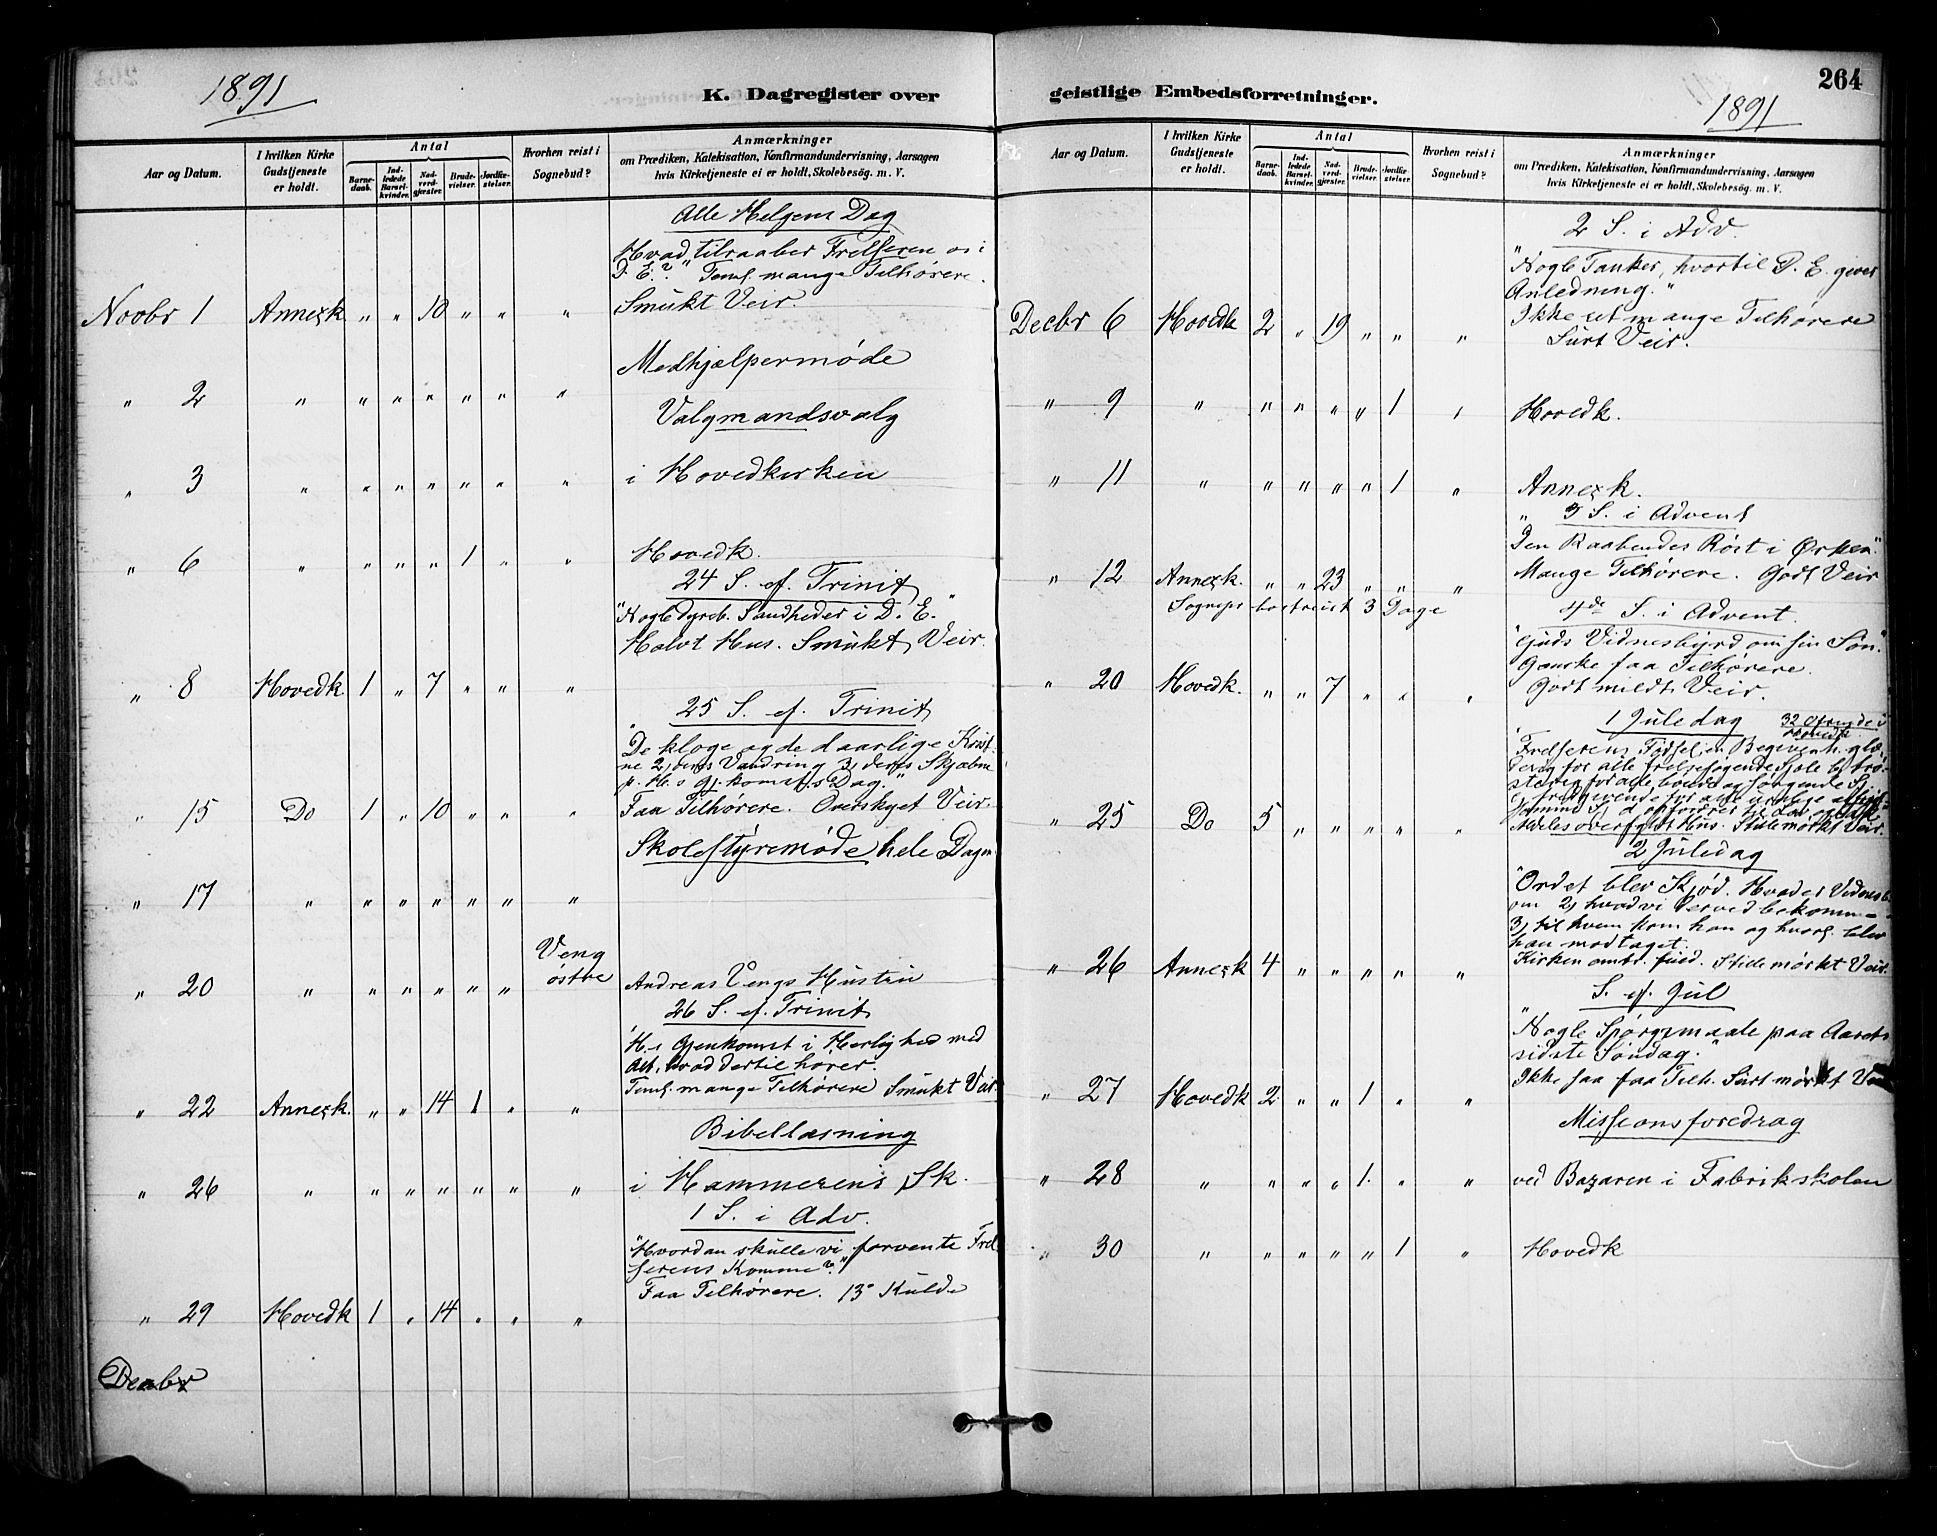 1891
K. Dagregister over
Aar og Datum.
I hvilken Kirke Gudstjeneste er holdt.
Antal
Barnedaab.
Indledede Barselkvinder.
Nadverdgjæster.
Brudevielser.
Jordfæstelser.
Hvorhen reist i Sognebud?
Anmærkninger
om Prædiken, Katekisation, Konfirmandundervisning, Aarsagen
hvis Kirketjeneste ei er holdt, Skolebesøg. m. V.
Alle Helgens Dag
Hvad tilraaber Frelseren os i
D. E.?" Teml. mange Tilhørere.
Novbr 1 Annexk. " " 10 " " " Smukt Veir.
Medhjælpermøde
" 2 " " " " " " "
Valgmandsvalg
" 3 " " " " " " " i Hovedkirken
" 6 " " " " 1 " " Hovedk.
24 S. ef. Trinit
"Nogle dyreb. Sandheder i D. E."
Halvt Hus. Smukt Veir.
" 8 Hovedk. 1 " 7 " " "
25 S. ef. Trinit
"De kloge og de daarlige Krist-
ne 2, deres Vandring 3, deres Skjæbne
p. H.s Gj.komsts Dag"
" 15 Do 1 " 10 " " " Faa Tilhørere. Overskyet Veir.
Skolestyremøde hele Dagen
" 17 " " " " " " "
Veng
" 20 " " " " " " østre Andreas Vengs Hustru
26 S. ef. Trinit
"H.s Gjenkomst i Herlighed med
Alt, hvad dertil hører.
Teml. mange Tilhørere Smukt Veir.
" 22 Annexk. " " 14 1 " "
Bibellæsning
" 26 " " " " " " " i Hammerens Sk.
1 S. i Adv.
"Hvordan skulle vi forvente Frel-
serens Komme?"
Faa Tilhørere. 13° Kulde
" 29 Hovedk 1 " 14 " " "
Decbr
264
geistlige Embedsforretninger.
1891
Aar og Datum.
I hvilken Kirke Gudstjeneste er holdt.
Antal
Barnedaab.
Indledede Barselkvinder.
Nadverdgjæster.
Brudevielser.
Jordfæstelser.
Hvorhen reist i Sognebud?
Anmærkninger
om Prædiken, Katekisation, Konfirmandundervisning, Aarsagen
hvis Kirketjeneste ei er holdt, Skolebesög. m. V.
2 S. i Adv.
"Nogle Tanker, hvortil D. E. giver
Anledning."
Decbr 6 Hovedk 2 " 19 " " " Ikke ret mange Tilhørere
Surt Veir.
" 9 " " " " " 1 " Hovedk.
" 11 " " " " " 1 " Annexk.
" 3 S. i Advent
Den Raabendes Røst i Ørken."
" 12 Annexk. " " 23 " " " Mange Tilhørere. Godt Veir
Sognepr bortreist 3 Dage
4de S. i Advent.
"Guds Vidnesbyrd om sin Søn"
Ganske faa Tilhørere.
" 20 Hovedk. " " 7 " " " Godt mildt Veir.
1 Juledag 32 Ofrende i Hovedk
"Frelserens Fødsel, en Begivenh. glæ-
delig for alle frelsesøgende Sjæle
" 25 Do 5 " " " " " Aldeles overfyldt Hus. Stille mørkt Veir.
2 Juledag
"Ordet blev Kjød. Hvad er Vidnesb.
om 2, hvad vi derved bekomme
3, til hvem kom han og hvorl. blev
han modtaget.
" 26 Annexk 4 " " " " " Kirken omtr. fuld. Stille mørkt Veir.
S. ef. Jul
"Nogle Spørgsmaale paa Aarets
sidste Søndag."
Ikke saa faa Tilh. Surt mørkt
" 27 Hovedk 2 " " 1 " "
Missionsforedrag
" 28 " " " " 1 " " ved Bazaren i Fabrikskolen
" 30 " " " " " 1 " Hovedk